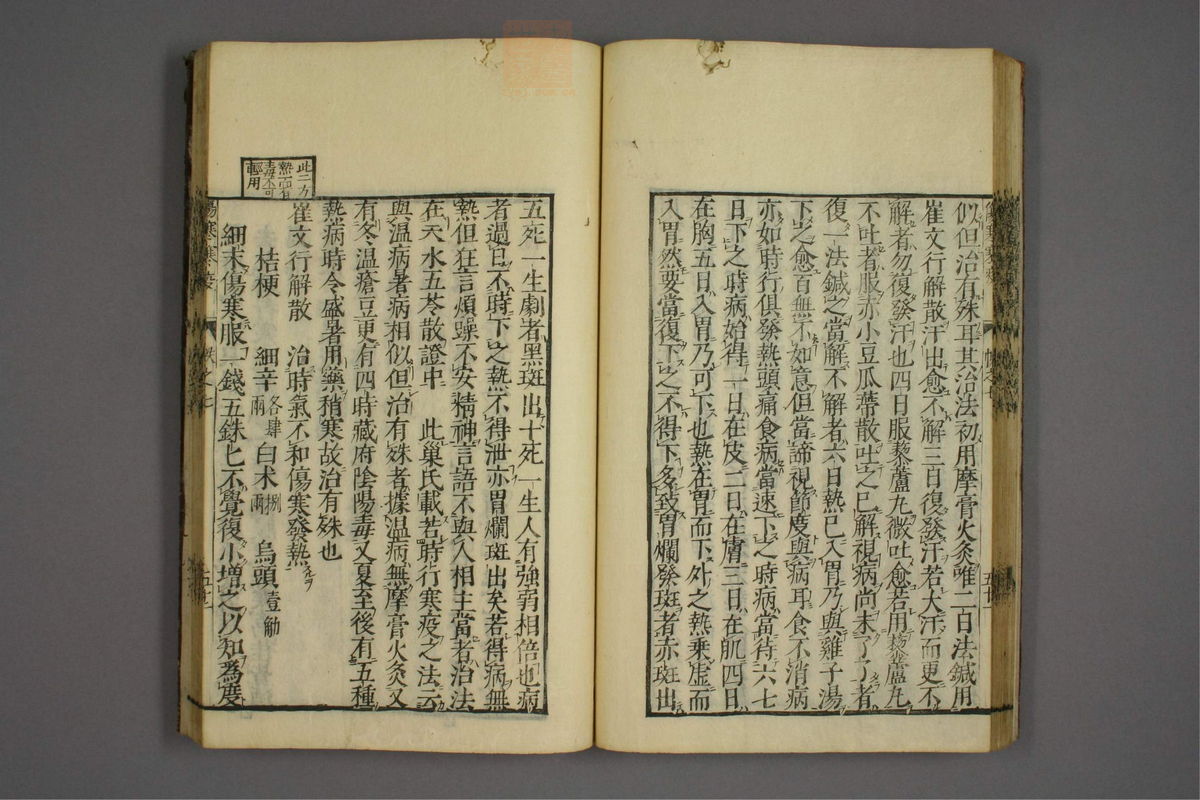 似但治有殊耳其治法初用摩膏火灸唯二日法鍼用
崔文行解散汗出愈不解三日復發汗若大汗而更不
解者勿復發汗也四日服藜蘆丸微吐愈若用藜蘆丸
不吐者服赤小豆瓜蔕散吐之已解視病尚未了了者
復一法鍼之當解不解者六日熱已入胃乃與雞子湯
下之愈百無不如意但當諦視節度與病耳食不消病
亦如時行俱發熱頭痛食病當速下之時病當待六七
日下之時病始得一日在皮二日在膚三日在肌四日
在胸五日入胃乃可下也熱在胃而下外之熱乗虚而
入胃然要當復下之不得下多致胃爛發斑者赤斑出
此二方
熱而有
毒不可
輕用
五死一生劇者黑斑出十死一生人有強弱相倍也病
者過日不時下之熱不得泄亦胃爛斑出矣若得病無
熱但狂言煩躁不安精神言語不與人相主當者治法
在天水五苓散證中 此巢氏載若時行寒疫之法云
與温病暑病相似但治有殊者據温病無摩膏火灸又
有冬温瘡豆更有四時藏府陰陽毒又夏至後有五種
熱病時令盛暑用藥稍寒故治有殊也
崔文行解散 治時氣不和傷寒發熱
桔梗 細辛各肆兩 白术捌兩 烏頭壹觔
細末傷寒服一錢五銖匕不覺復小增之以知爲度